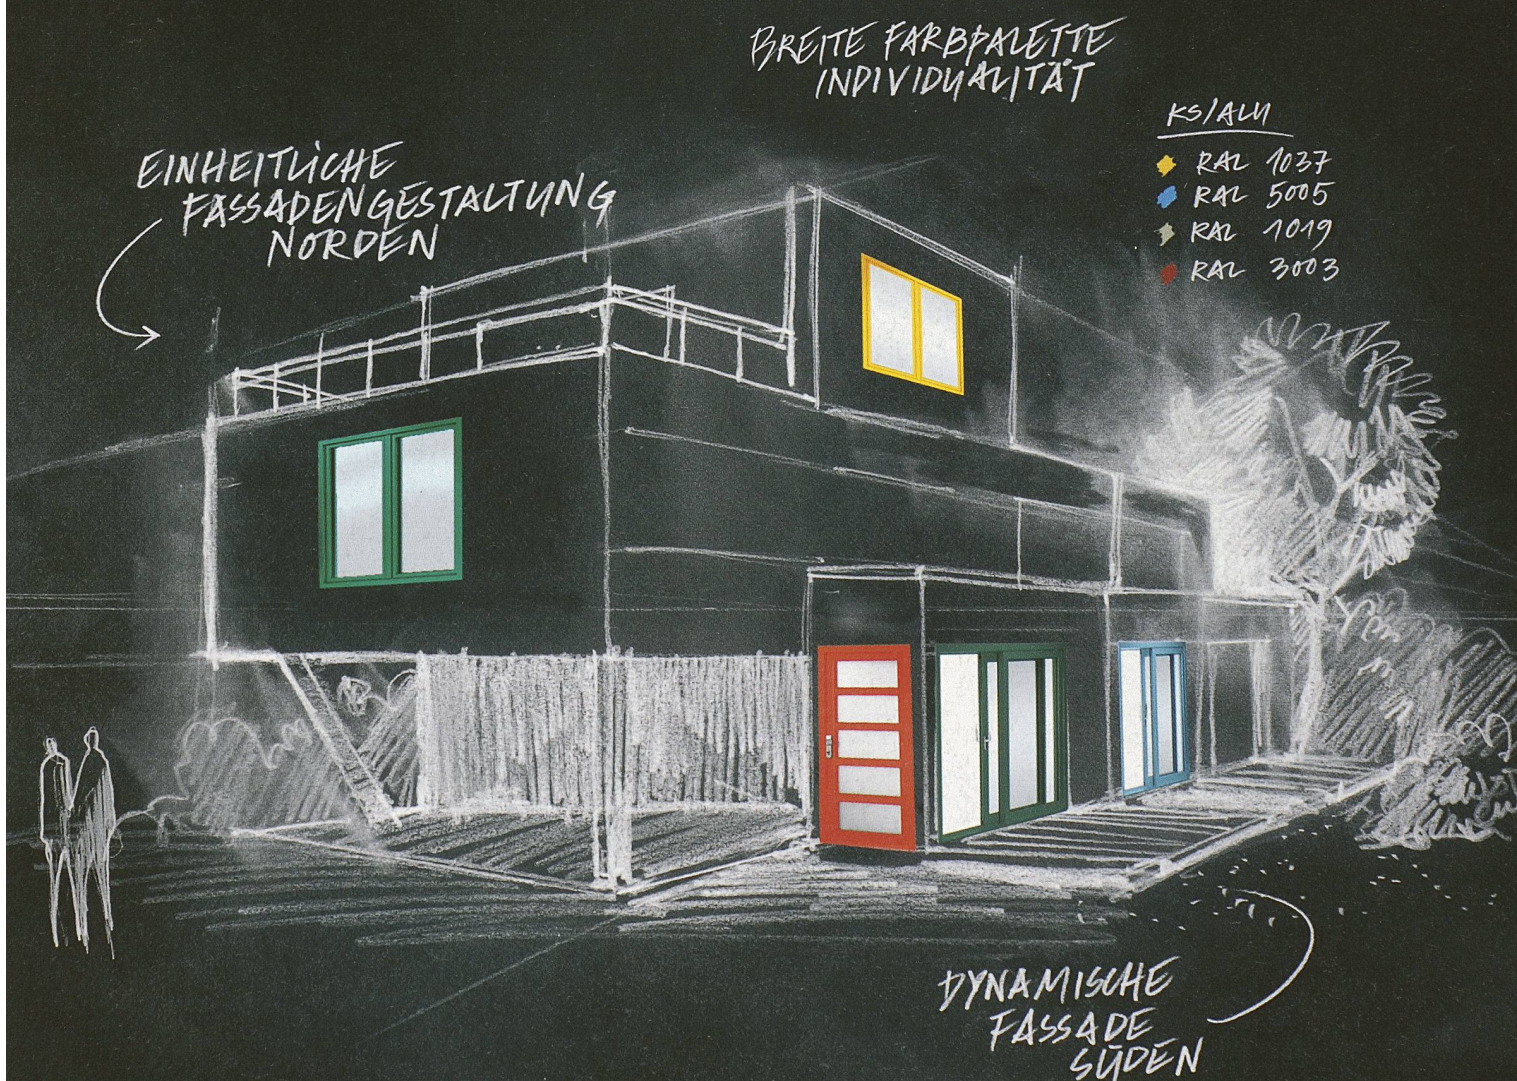 BREITE FARBPALETTE
INDIVIDUALITÄT
KS/ALU
RAL 1037
RAL 5005
RAL 1019
RAL 3003
EINHEITLICHE
FASSADENGESTALTUNG
NORDEN
DYNAMISCHE
FASSADE
SÜDEN